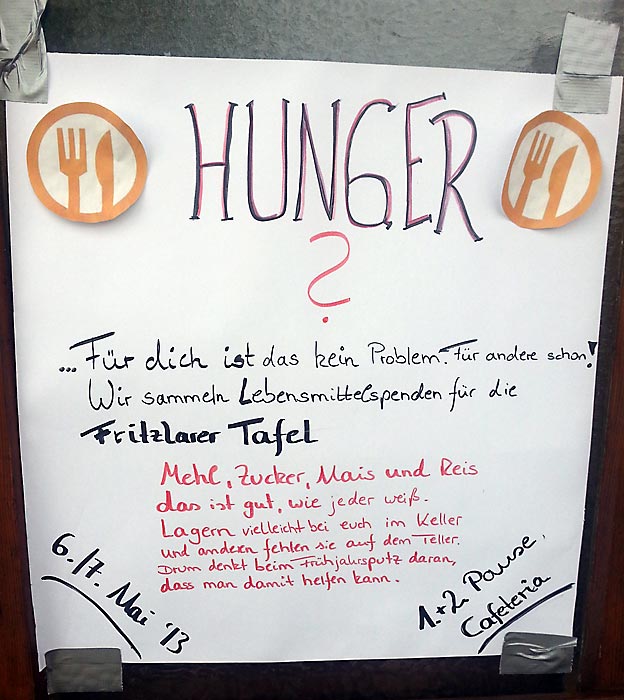 HUNGER
?
...Für dich ist das kein Problem. Für andere schon!
Wir sammeln Lebensmittelspenden für die
Fritzlarer Tafel
Mehl, Zucker, Mais und Reis
das ist gut, wie jeder weiß.
Lagern vielleicht bei euch im Keller
und anderen fehlen sie auf dem Teller.
Drum denkt beim Frühjahrsputz daran,
dass man damit helfen kann.
6./7. Mai '13
1.+2. Pause,
Cafeteria